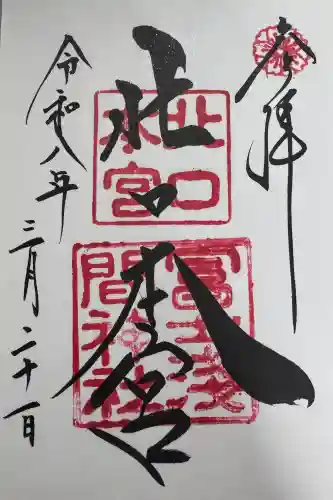 奉拝
北口本宮
北口
本宮
冨士浅
間神社
令和八年
三月二十一日